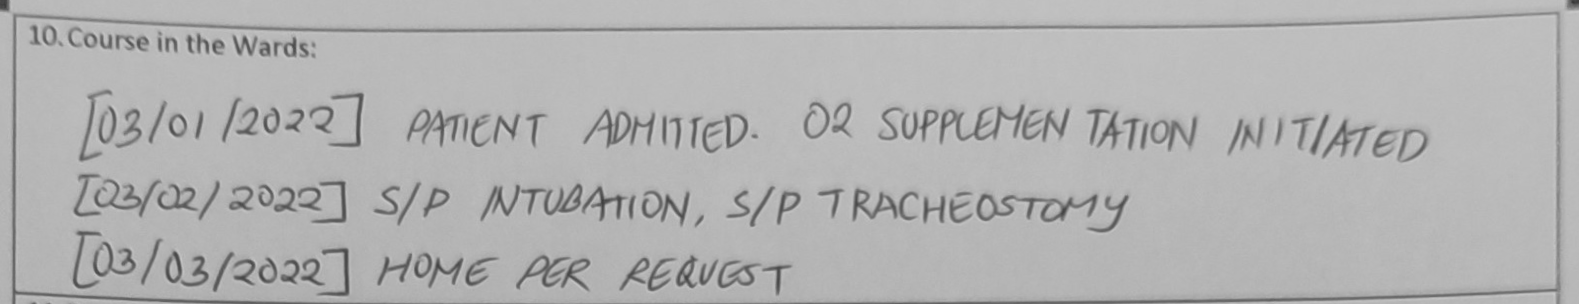 10. Course in the Wards:
[03/01/2022] PATIENT ADMITTED. O2 SUPPLEMENTATION INITIATED
[03/02/2022] S/P INTUBATION, S/P TRACHEOSTOMY
[03/03/2022] HOME PER REQUEST